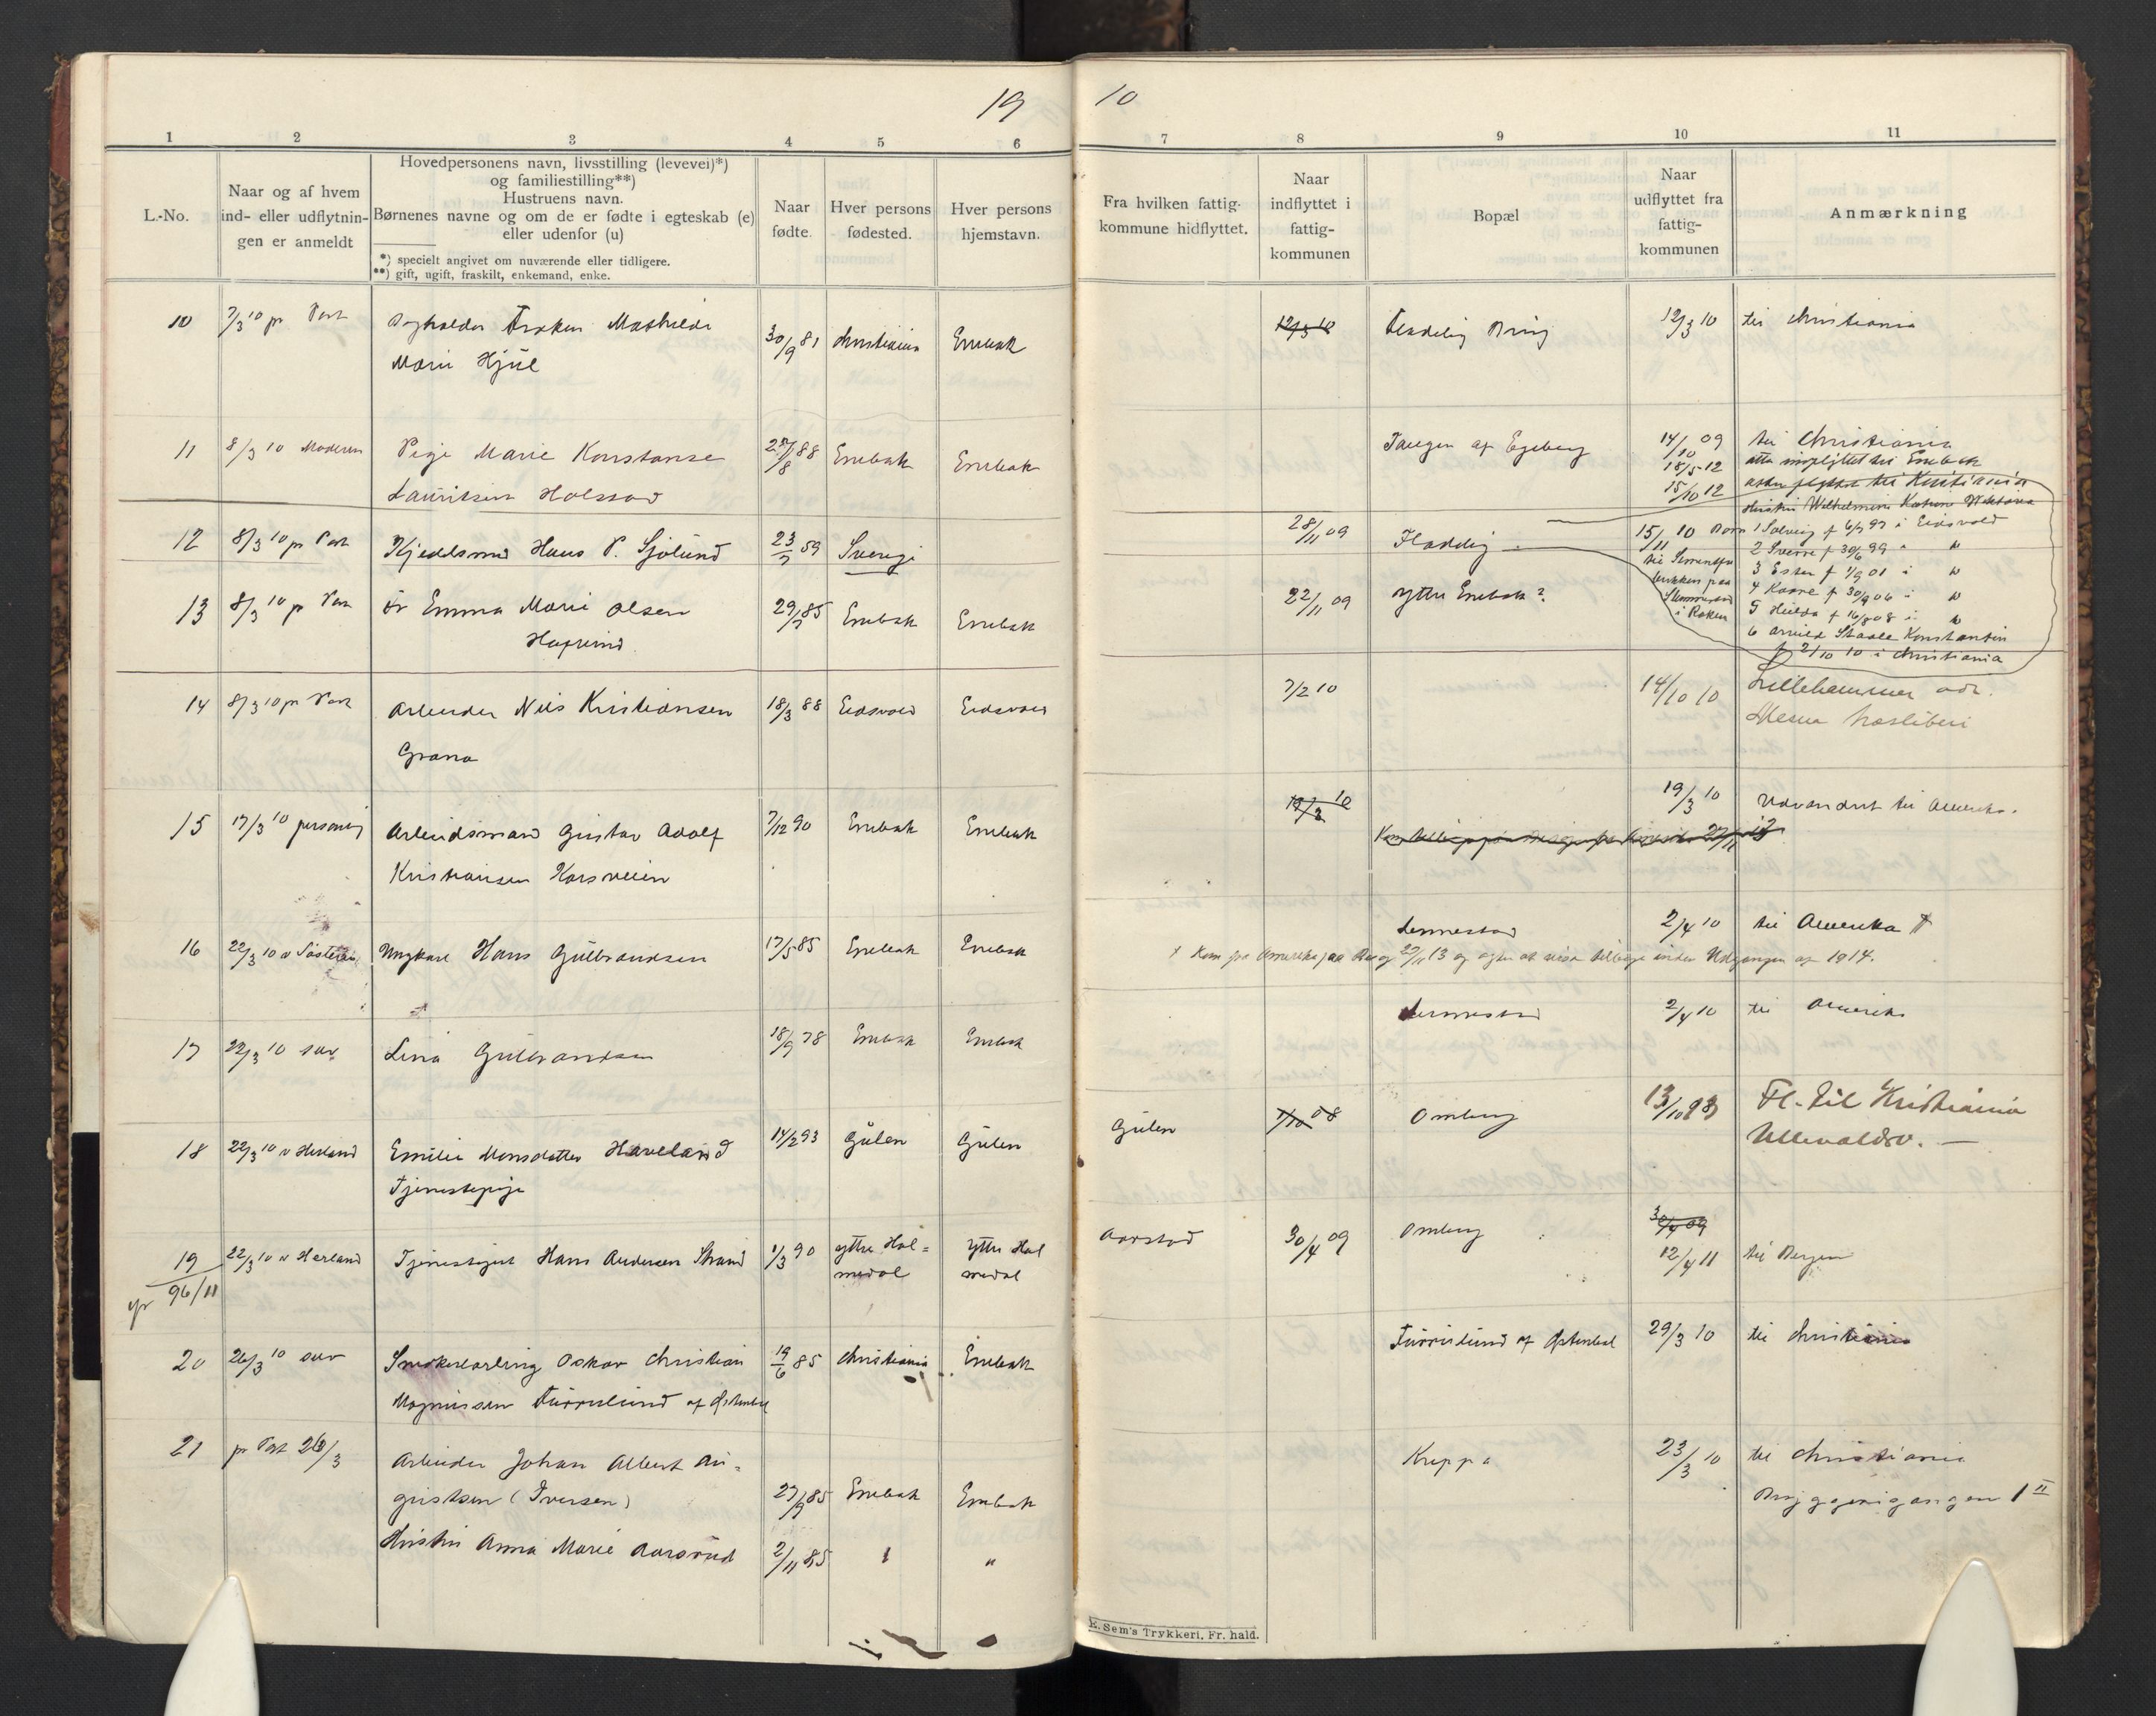 19 10
1 2 3 4 5 6 7 8 9 10 11
L.-No.
Naar og af hvem
ind- eller udflytnin-
gen er anmeldt
Hovedpersonens navn, livsstilling (levevei)*)
og familiestilling**)
Hustruens navn.
Børnenes navne og om de er fødte i egteskab (e)
eller udenfor (u)
*) specielt angivet om nuværende eller tidligere.
**) gift, ugift, fraskilt, enkemand, enke.
Naar
fødte.
Hver persons
fødested.
Hver persons
hjemstavn.
Fra hvilken fattig-
kommune hidflyttet.
Naar
indflyttet i
fattig-
kommunen
Bopæl
Naar
udflyttet fra
fattig-
kommunen
Anmærkning
10 7/3 10 pr Post Frøken Mathilde 30/9 81 Christiania Enebak 12/3 10 12/3 10 til Christiania
Marie Hjul
11 8/3 10 Moderen Pige Marie Konstanse 8 88 Enebak Enebak Tangen af Egeberg 14/10 09 til Christiania
Lauritsen Holstad
18/5 12 atter indflyttet til Enebak
15/10 12 atter flyttet til Kristiania
Hustru Wilhelmine Katrine Viktoria
12 8/3 10 pr Post Kjeldsmed Hans P. Sjølund 23/7 59 Sverige 28/11 09 Fladeby 15/11 10 Born 1 Solveig f 6/7 97 i Eidsvold
2 Sverre f 30/6 99 " "
3 Ester f 1/9 01 i "
4 Kaare f 30/9 06 i "
5 Hilda f 16/8 08 i "
6 Arvild Staale Konstantin
f 2/10 10 i Christiania
til Sementfa
brikken paa
i Røken
13 8/3 10 pr Post Fr Emma Marie Olsen 29/7 85 Enebak Enebak 22/11 09 Ytre Enebak?
14 8/3 10 pr Post Arbeider Nils Kristiansen 18/3 88 Eidsvold Eidsvold 7/2 10 14/10 10 Lillehammer adr.
Grana Mesna Træsliberi
15 17/3 10 personlig Arbeidsmand Gustav Adolf 7/12 90 Enebak Enebak 19/3 10 19/3 10 Udvandret til Amerika.
Kristiansen Korsveien
16 22/3 10 v Søsteren Ungkarl Hans Gulbrandsen 17/5 85 Enebak Enebak Lennestad 2/4 10 til Amerika †
† Kom fra Amerika paa Besøg 27/11 13 og agter at reise tilbage inden Udgangen af 1914.
17 22/3 10 selv Lina Gulbrandsen 18/9 78 Enebak Enebak Lennestad 2/4 10 til Amerika
18 22/3 10 v Herland Emilie Monsdatter Haveland 14/2 93 Gulen Gulen Gulen 1/10 08 Omberg Fl. til Kristiania
Tjenestepige Ullevaldsv. —
19 22/3 10 v Herland Tjenestegut Hans Andersen Strand 1/3 90 Ytre Hol= Ytre Hol Aarstad 30/4 09 Omberg 30/4 09
96/11 medal medal 12/4 11 til Bergen
20 26/3 10 selv Snekkerlærling Oskar Christian 19/6 85 Christiania Enebak Furrulund af Østenbøl 29/3 10 til Christiania
Magnussen Furrulund af Østenbøl
21 pr Post 26/3 Arbeider Johan Albert Au= Kreppa 23/3 10 til Christiania
gustsen (Iversen) 27/9 85 Enebak Enebak Bryggerigangen 1 II
Hustru Anna Marie Aarsrud 2/11 85 "
E. Sem's Trykkeri, Fr. hald.